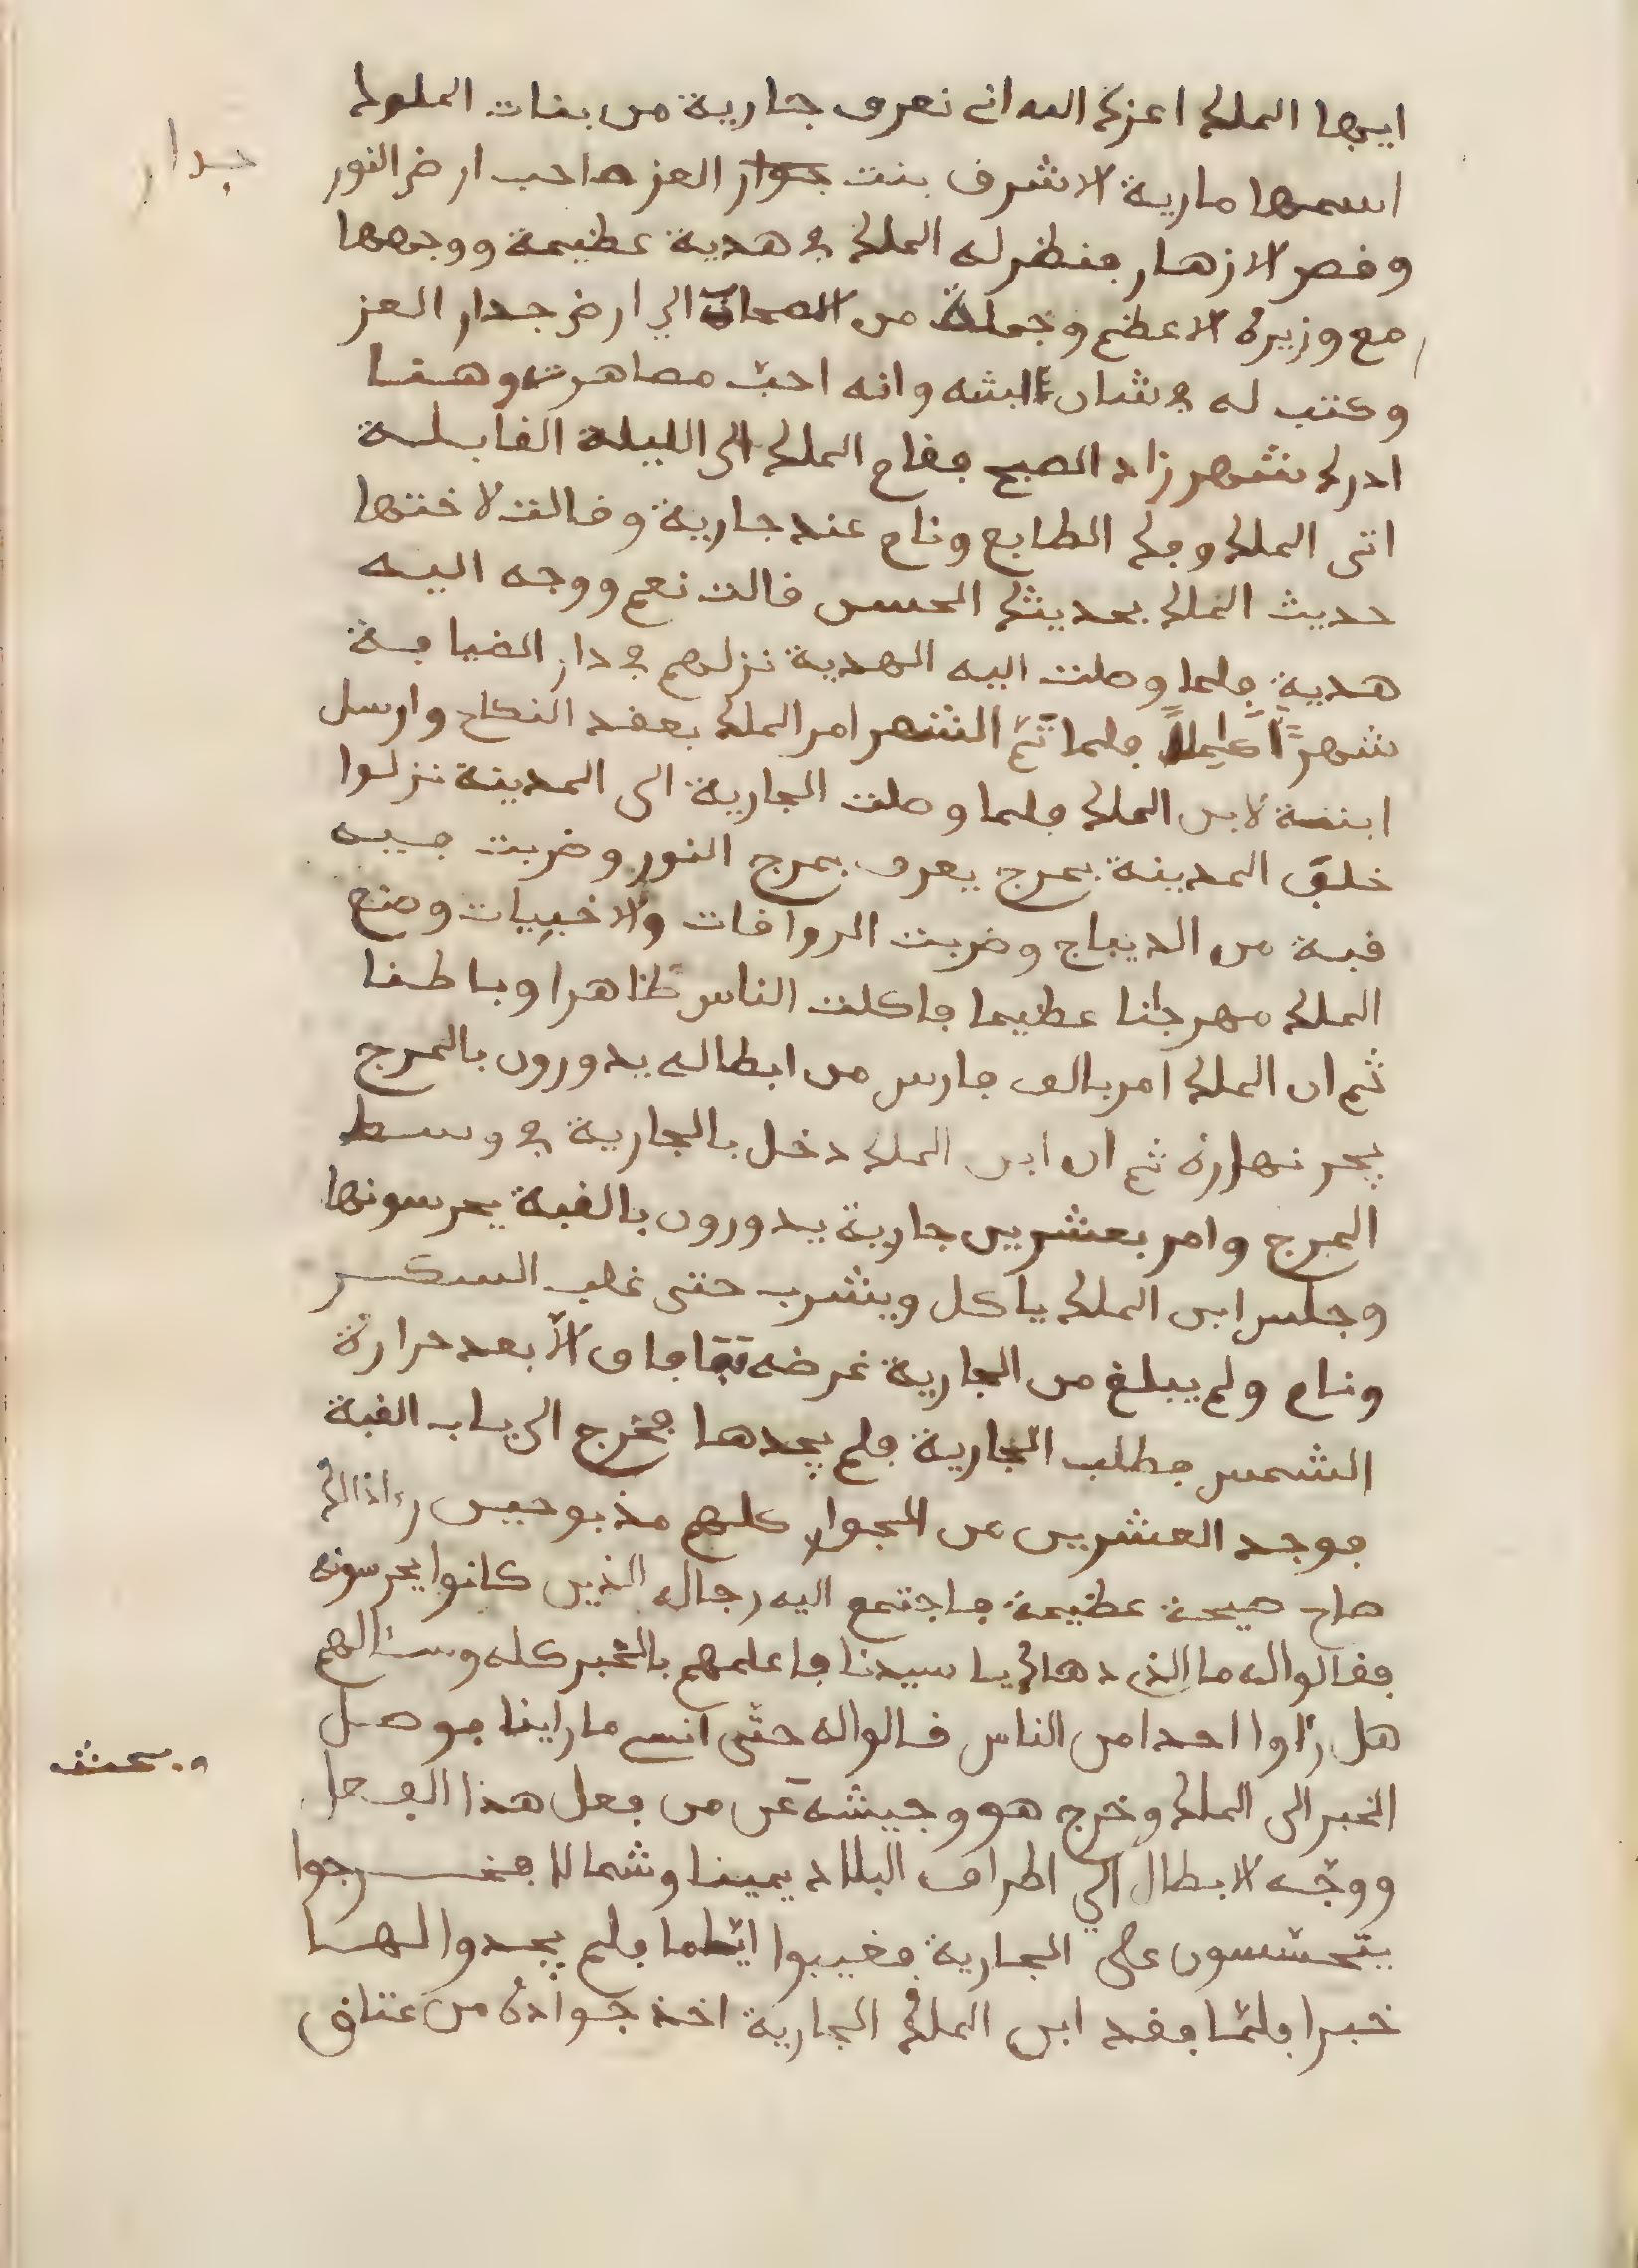 ايها الملك اعزك الله انى نعرف جارية من بنات الملوك
اسمها مارية الاشرف بنت جوار العز صاحب ارض النور
جدار
وقصر الازهار فنظر له الملك في هدية عظيمة ووجهها
مع وزيره الاعظم وجملة من الصحابة الي ارض جدار العز
وكتب له في شان ابنته وانه احبّ مصاهرته وهنا
ادرك شهرزاد الصبح فقام الملك الى الليلة القابلة
اتى الملك وفك الطابع ونام عند جارية وقالت لاختها
حديث الملك بحديثك الحسن قالت نعم ووجه اليه
هدية فلما وصلت اليه الهدية نزلهم في دار الضيافة
شهرًا كاملًا فلما تمّ الشهر امر الملك بعقد النكاح وارسل
ابنته لابن الملك فلما وصلت الجارية الى المدينة نزلوا
خلف المدينة بمرج يعرف بمرج النور وضربت فيه
قبة من الديباج وضربت الرواقات والاخبيات وصنع
الملك مهرجانا عظيما فاكلت الناس ظاهرا وباطنا
ثم ان الملك امر بالف فارس من ابطاله يدورون بالمرج
نهاره ثم ان ابن الملك دخل بالجارية في وسط
المرج وامر بعشرين جارية يدورون بالقبة يحرسونها
وجلس ابن الملك ياكل ويشرب حتى غلب السكر
ونام ولم يبلغ من الجارية غرضه فافاق الّا بعد حرارة
الشمس فطلب الجارية فلم يجدها فخرج الى باب القبة
فوجد العشرين من الجوار كلهم مذبوحين اذالك
صاح صيحة عظيمة فاجتمع اليه رجاله الذين كانوا يحرسونه
فقالوا له ما الذى دهاك يا سيدنا فاعلمهم بالخبر كله وسالهم
هل رٵوا احدا من الناس قالوا له حتّى انسى ما راينا فوصل
الخبر الى الملك وخرج هو وجيشه عَن من فعل هذا الفعل
ويبحث
ووجّه الابطال الي اطراف البلاد يمينا وشمالا فخرجوا
يتحسّسون على الجارية فغيبوا ايّاما فلم يجدوا لها
خبرا فلمّا فقد ابن الملك الجارية اخذ جواده من عتاق